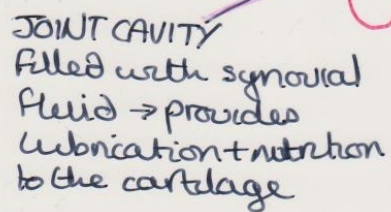 JOINT CAVITY
filled with synovial
fluid → provides
lubrication + nutrition
to the cartilage